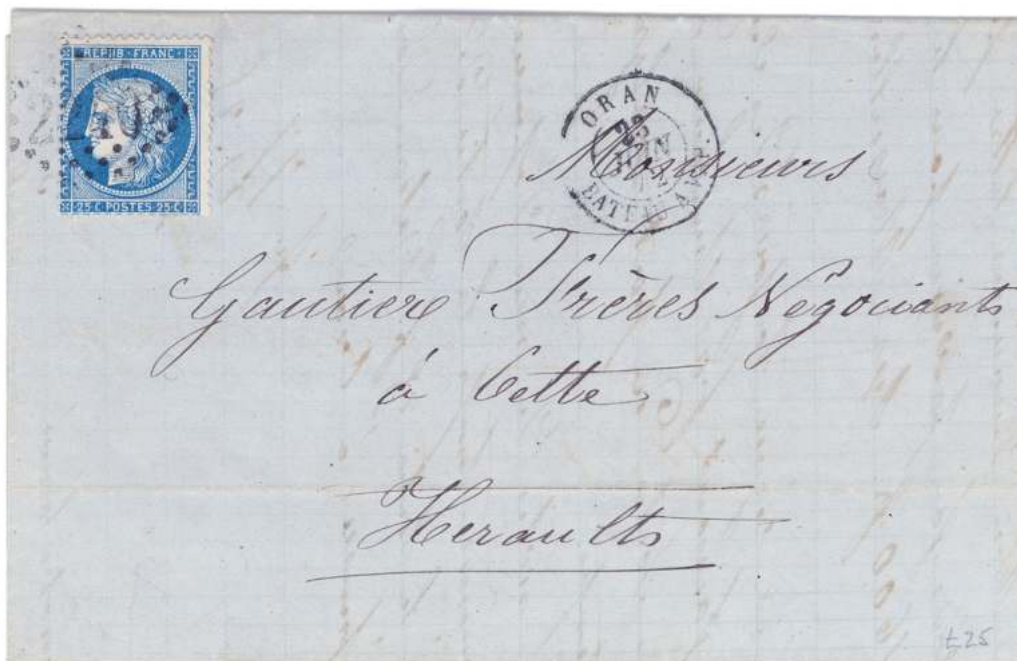 REPUB · FRANC
25 C POSTES 25 C
ORAN
23
JUIN
BATEAU
Messieurs
Gautier Frères Négociants
à Cette
Herault
£25